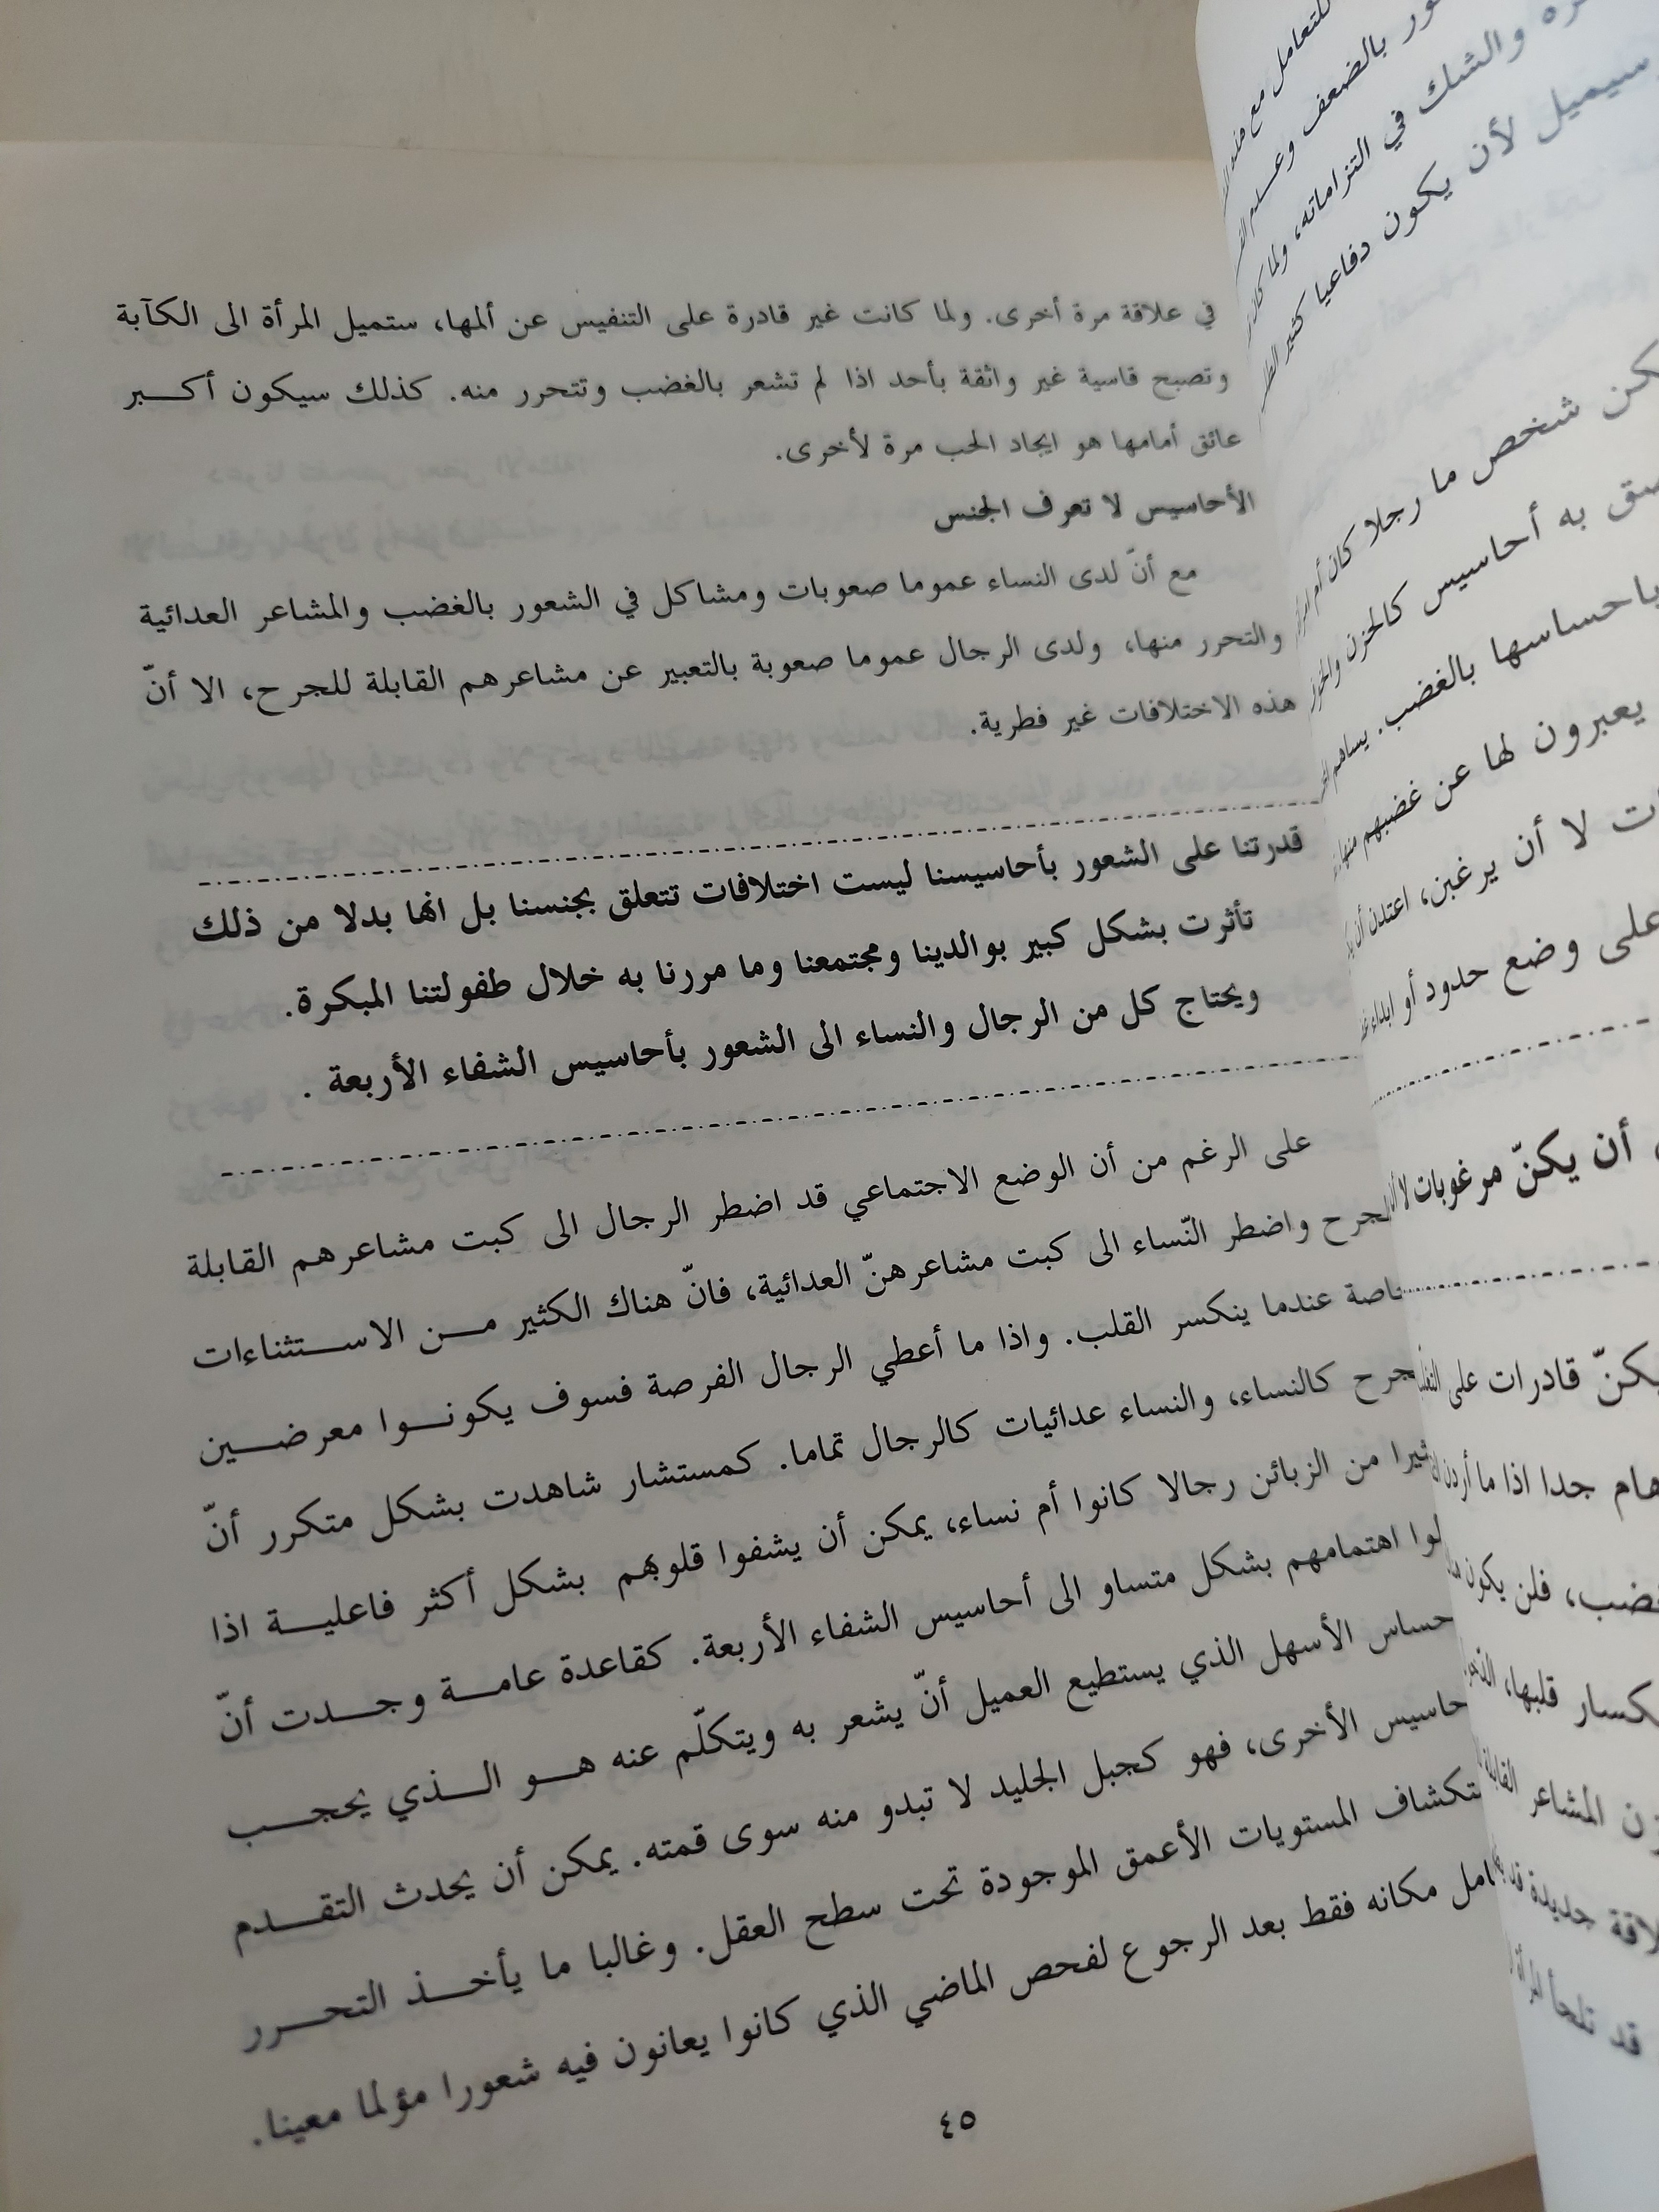 في علاقة مرة أخرى. ولما كانت غير قادرة على التنفيس عن ألمها، ستميل المرأة الى الكآبة
وتصبح قاسية غير واثقة بأحد اذا لم تشعر بالغضب وتتحرر منه. كذلك سيكون أكـــبر
عائق أمامها هو ايجاد الحب مرة لأخرى.
الأحاسيس لا تعرف الجنس
مع أنّ لدى النساء عموما صعوبات ومشاكل في الشعور بالغضب والمشاعر العدائية
والتحرر منها، ولدى الرجال عموما صعوبة بالتعبير عن مشاعرهم القابلة للجرح، الا أنّ
هذه الاختلافات غير فطرية.
قدرتنا على الشعور بأحاسيسنا ليست اختلافات تتعلق بجنسنا بل انها بدلا من ذلك
تأثرت بشكل كبير بوالدينا ومجتمعنا وما مررنا به خلال طفولتنا المبكرة.
ويحتاج كل من الرجال والنساء الى الشعور بأحاسيس الشفاء الأربعة .
على الرغم من أن الوضع الاجتماعي قد اضطر الرجال الى كبت مشاعرهم القابلة
للجرح واضطر النّساء الى كبت مشاعرهنّ العدائية، فانّ هناك الكثير مـــن الاســـتثناءات
عندما ينكسر القلب. واذا ما أعطي الرجال الفرصة فسوف يكونـــوا معرضـــين
كالنساء، والنساء عدائيات كالرجال تماما. كمستشار شاهدت بشكل متكرر أنّ
من الزبائن رجالا كانوا أم نساء، يمكن أن يشفوا قلوبهم بشكل أكثر فاعليـــة اذا
اهتمامهم بشكل متساو الى أحاسيس الشفاء الأربعة. كقاعدة عامـــة وجـــدت أنّ
الأسهل الذي يستطيع العميل أنّ يشعر به ويتكلّم عنه هـــو الـــذي يحجـــب
الأخرى، فهو كجبل الجليد لا تبدو منه سوى قمته. يمكن أن يحدث التقـــدم
المستويات الأعمق الموجودة تحت سطح العقل. وغالبا ما يأخـــذ التحـــرر
مكانه فقط بعد الرجوع لفحص الماضي الذي كانوا يعانون فيه شعورا مؤلما معينا.
٤٥
للتعامل مع
بالضعف
والشك في التزاماته، ولما
سيميل لأن يكون دفاعيا كثير
شخص ما رجلا كان أم
به أحاسيس كالحزن
باحساسها بالغضب.
يعبرون لها عن غضبهم
لا أن يرغبن، اعتدن أن
على وضع حدود أو ابداء
أن يكنّ مرغوبات لا
قادرات على
هام جدا اذا ما أردن
فلن يكون
قلبها،
المشاعر القابلة
جديدة
قد تلجأ